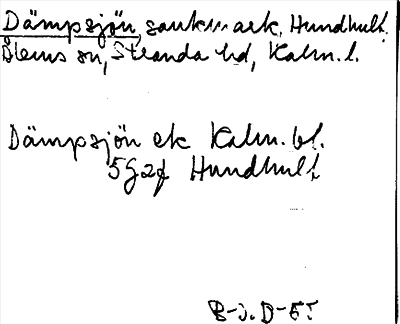 Dämpsjön, sankmark, Hundhult,
Ålems sn, Stranda hd, Kalm. l.
Dämpsjön ek Kalm. bl.
5G2f Hundhult
B-J. D-ET